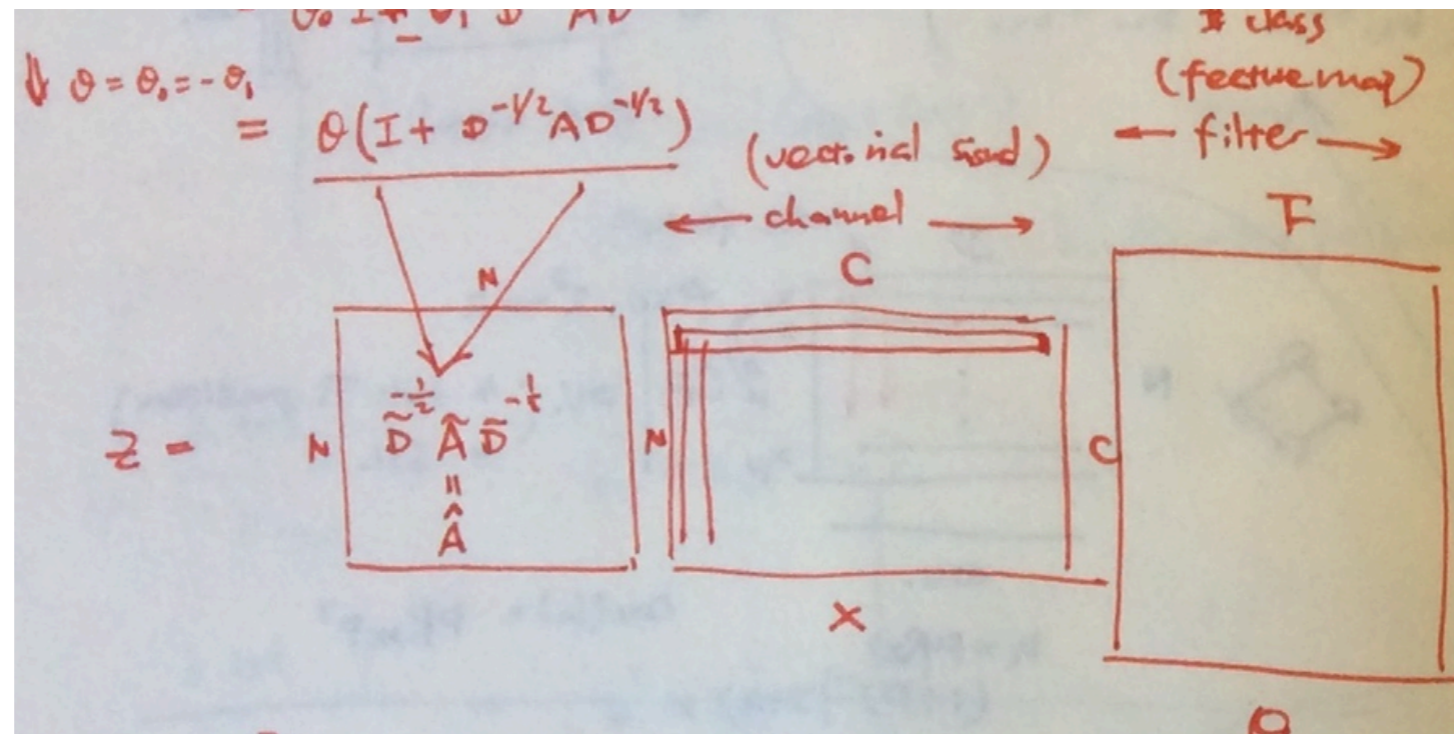 # class
⇓ θ = θ₀ = -θ₁
= θ(I + D^{-1/2} A D^{-1/2})
(feature map)
← filter →
(vectorial signal)
← channel →
F
C
N
Z =
N
D̃^{-1/2} Ã D̃^{-1/2}
=
Â
N
C
X